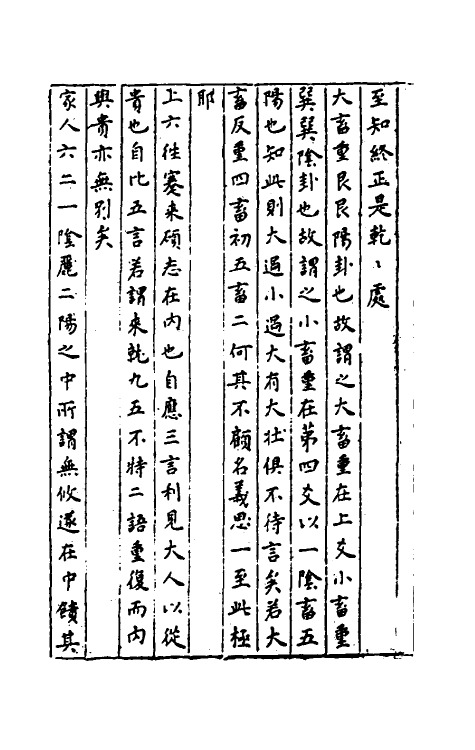 至知終正是乾乾處
大畜重艮艮陽卦也故謂之大畜重在上爻小畜重
巽巽陰卦也故謂之小畜重在第四爻以一陰畜五
陽也知此則大過小過大有大壯俱不待言矣若大
畜反重四畜初五畜二何其不顧名義思一至此極
耶
上六往蹇來碩志在内也自應三言利見大人以從
貴也自比五言若謂來就九五不特二語重復而内
與貴亦無别矣
家人六二一陰麗二陽之中所謂無攸遂在中饋其